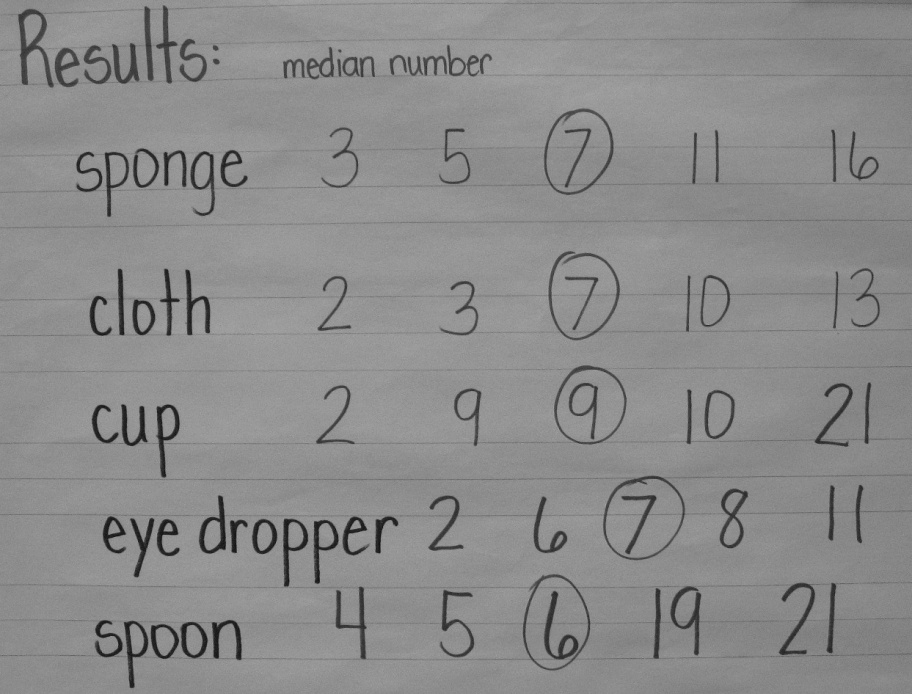 Results: median number
sponge 3 5 7 11 16
cloth 2 3 7 10 13
cup 2 9 9 10 21
eye dropper 2 6 7 8 11
spoon 4 5 6 19 21